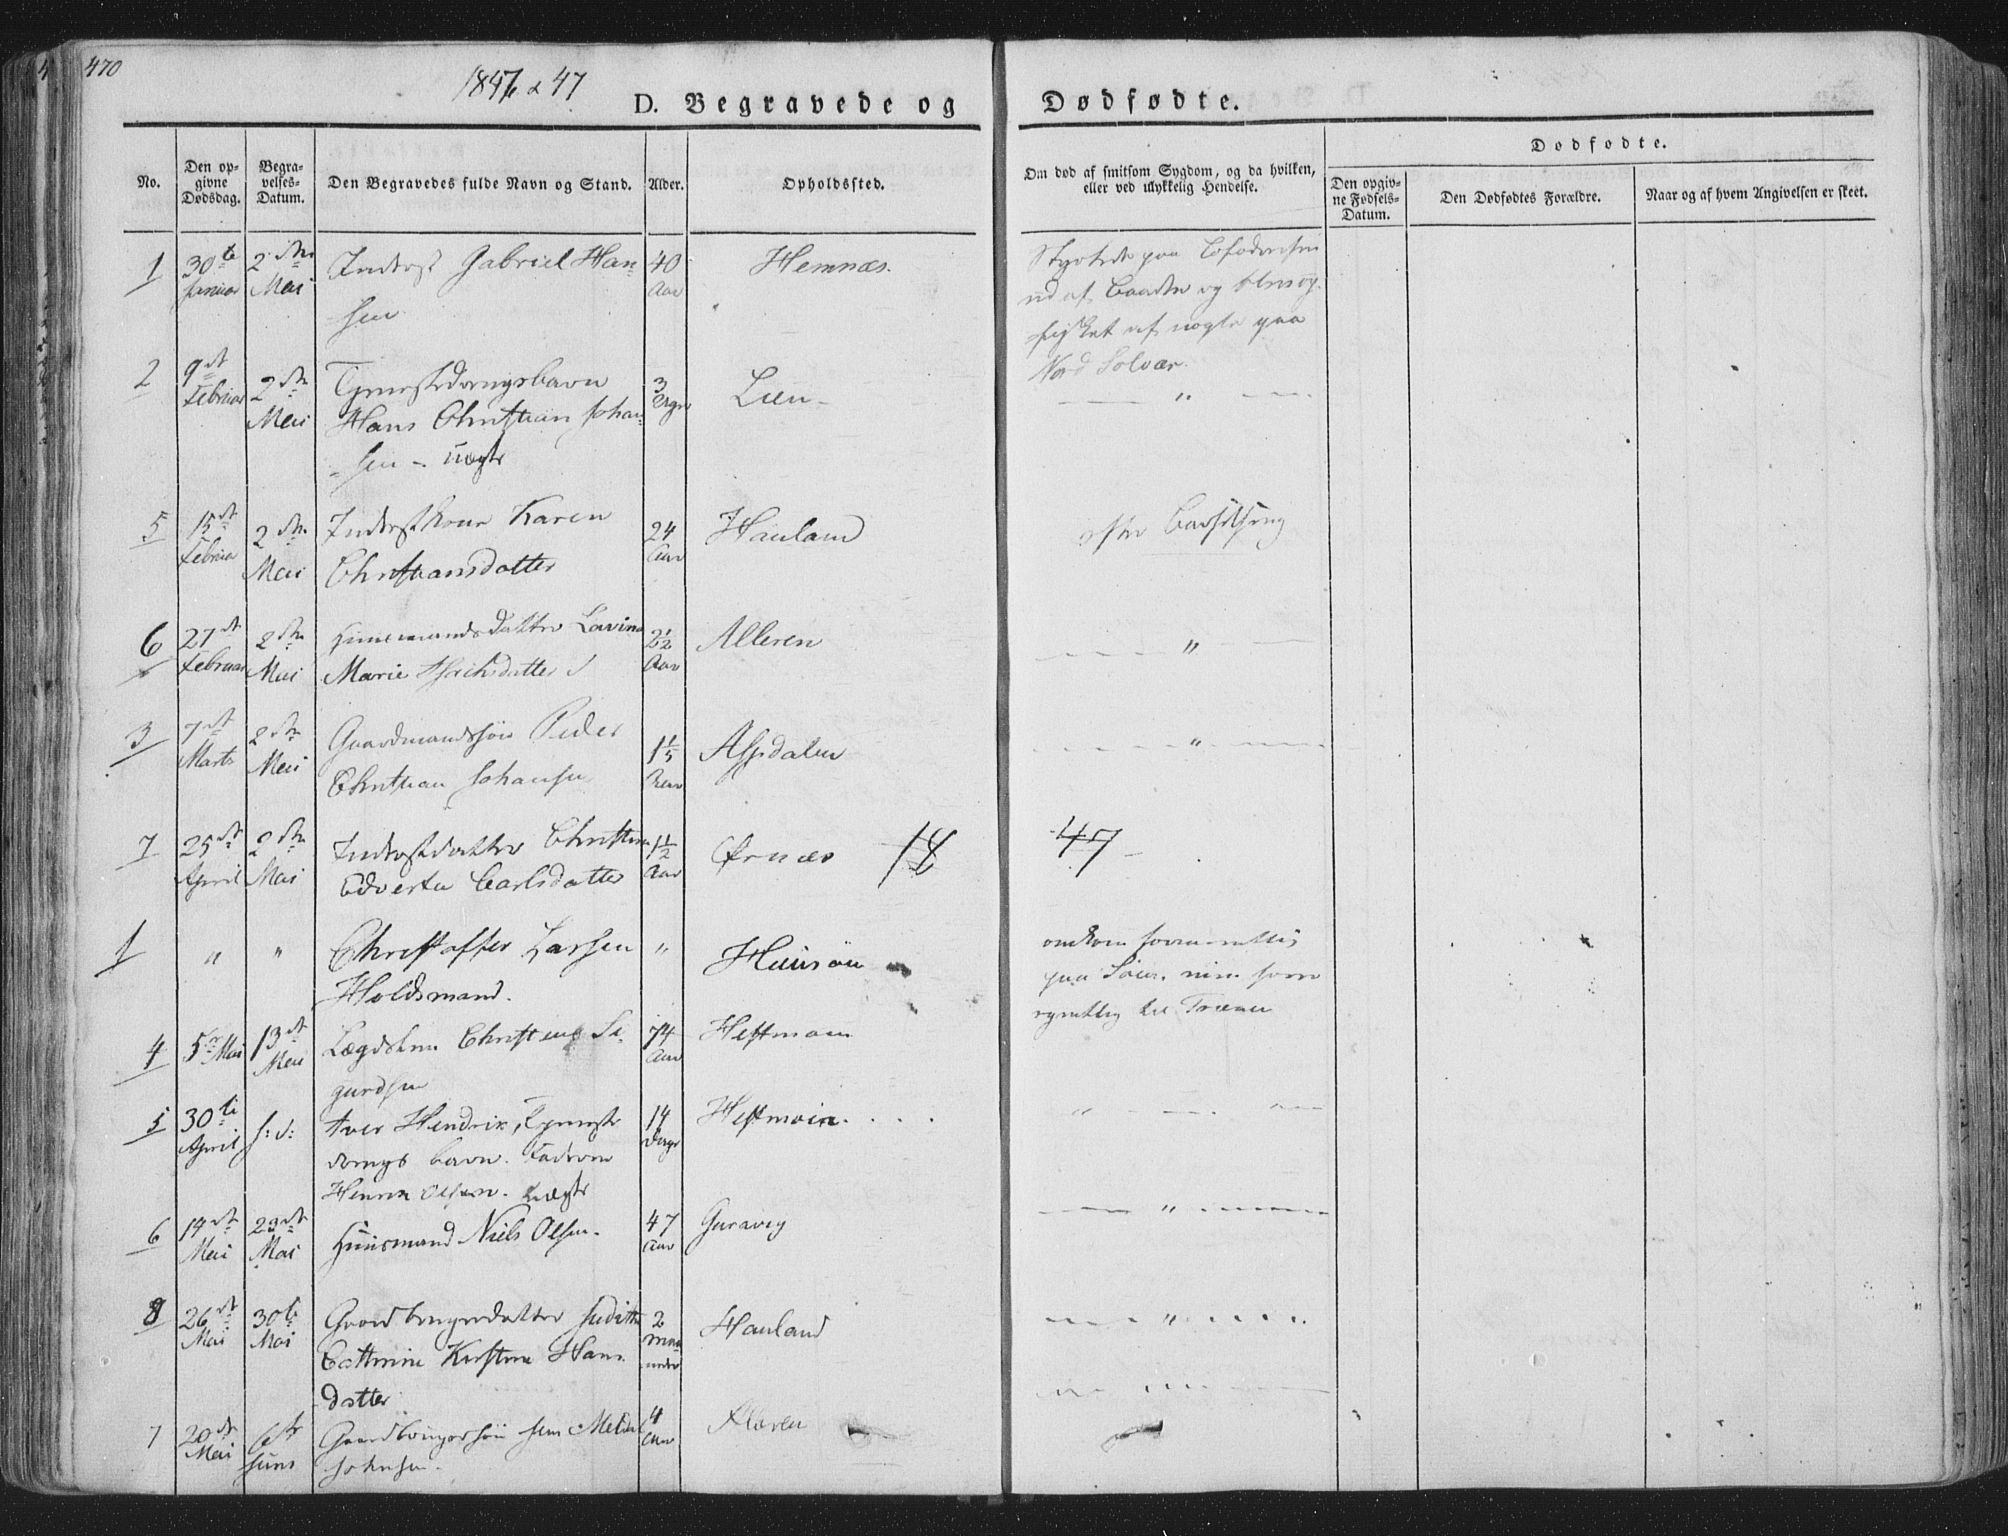 470
1846 & 47
D. Begravede og Dødfødte.
No.
Den opgivne Dødsdag.
Begravelses-Datum.
Den Begravedes fulde Navn og Stand.
Alder.
Opholdssted.
Om død af smitsom Sygdom, og da hvilken, eller ved ulykkelig Hendelse.
Dødfødte.
Den opgivne Fødsels-Datum.
Den Dødfødtes Forældre.
Naar og af hvem Angivelsen er skeet.
1 30te Januar 2den Mai Inderst Gabriel Hansen 40 Aar Hemnæs.
ud af Baaden og
af nogle paa
Nord Solvær.
2 9de Februar 2den Mai Tjenestedrengsbarn
Hans Christian Johansen - uægte 3 Lien - "
5 15de Februar 2den Mai Inderstkone Karen
Christiansdatter 24 Aar Hauland efter Barselseng
6 27de Februar 2den Mai Huusmandsdatter Lovina
Marie 2½ Aar Alteren "
3 7de Marts 2den Mai Gaardmandssøn Peder
Christian Johansen 1 1/5 Aspdalen "
7 25de April 2den Mai Inderstdatter Christine
Edverta Carlsdatter 1½ Aar Ørnæs
18 47
1 " " Christoffer Larsen
Holdsmand. " Huusøen
omkom
paa Søen
til Trænen
4 5te Mai 13de Mai Lægdslem Christens Sigurdsen 74 Aar Hestmoen
5 30te April s: d: Iver Hendrik, Tjenestedrengs barn. Faderen
Henrik Olsen. uægte 14 Dage Hestmoen. "
6 14de Mai 23de Mai Huusmand Niels Olsen. 47 Aar Guravig "
8 26de Mai 30te Mai Gaardbrugerdatter Judithe
Cathrine Kirstine Hansdatter 2 Maaneder Hauland "
7 20de Mai 6te Juni Gaardbrugersøn Jens
Johnsen. 4 Aar